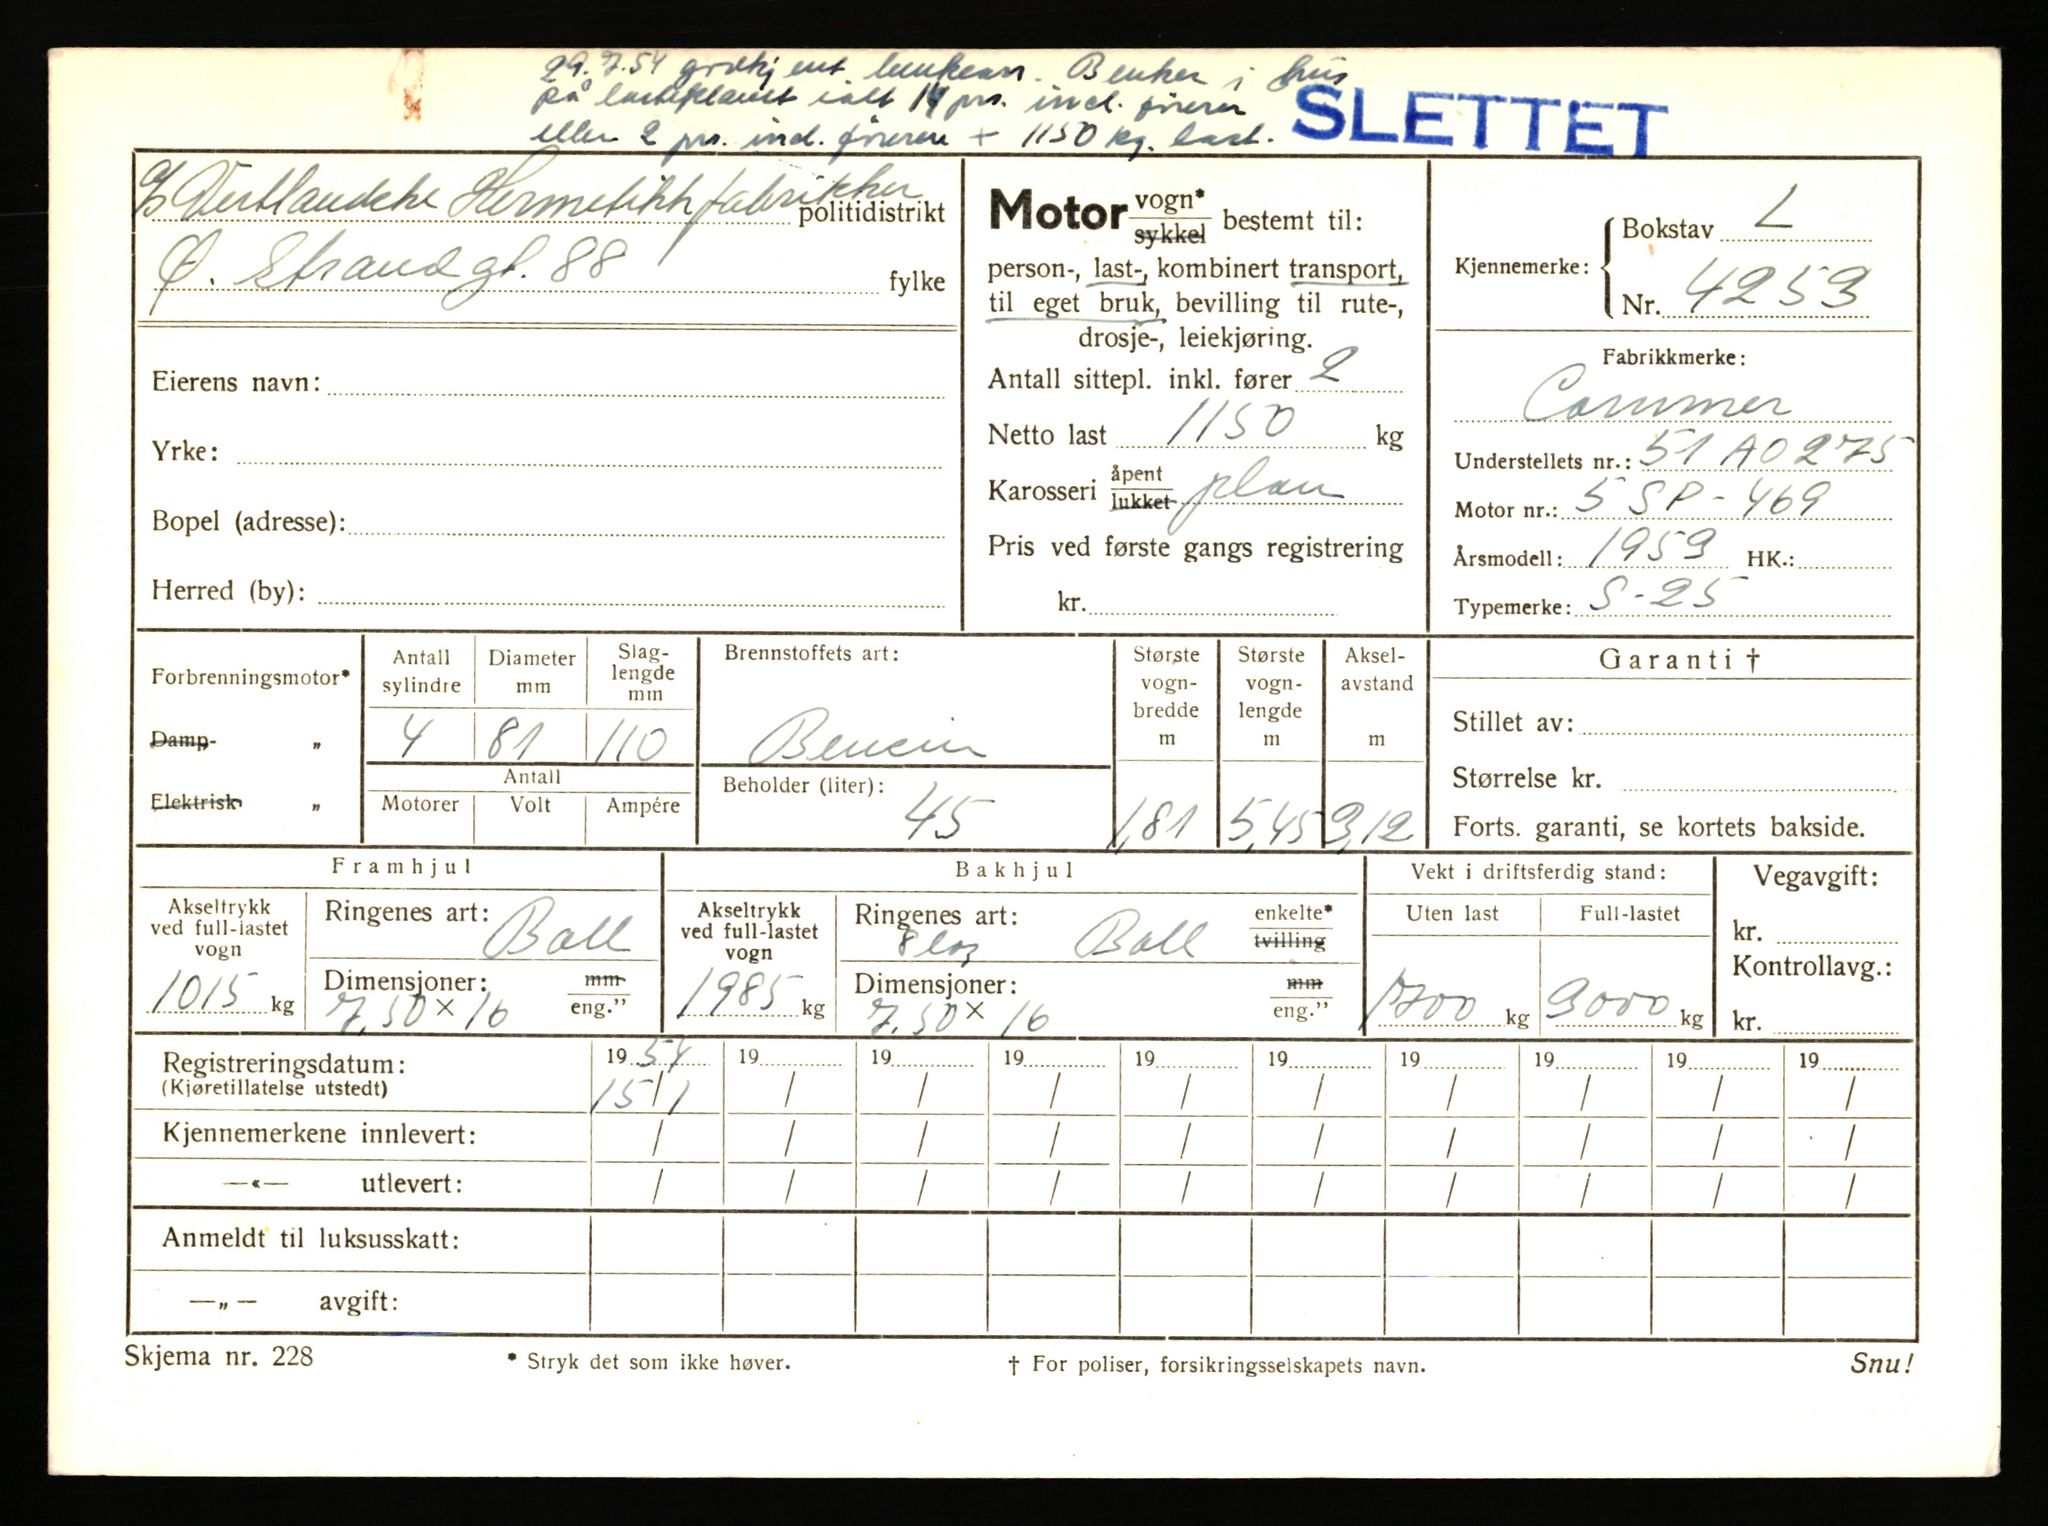 29.7.54 godkjent. Benker i hus
på lasteplanet ialt 14 prs. incl. fører
eller 2 prs. incl. fører + 1150 kg. last.
SLETTET
A/S Vestlandske Hermetikkfabrikker politidistrikt
Ø. Strandgt. 88 fylke
Eierens navn:
Yrke:
Bopel (adresse):
Herred (by):
Motor vogn* sykkel bestemt til:
person-, last-, kombinert transport,
til eget bruk, bevilling til rute-,
drosje-, leiekjøring.
Antall sittepl. inkl. fører 2
Netto last 1150 kg
Karosseri åpent lukket plan
Pris ved første gangs registrering
kr.
Kjennemerke: Bokstav L
Nr. 4253
Fabrikkmerke:
Commer
Understellets nr.: 51 A0275
Motor nr.: 5 SP-469
Årsmodell: 1953 HK.:
Typemerke: S-25
Forbrenningsmotor*
Damp- „
Elektrisk „
Antall sylindre 4
Diameter mm 81
Slag-lengde mm 110
Antall
Motorer Volt Ampére
Brennstoffets art:
Bencin
Beholder (liter): 45
Største vogn-bredde m 1,81
Største vogn-lengde m 5,45
Aksel-avstand m 3,12
Garanti †
Stillet av:
Størrelse kr.
Forts. garanti, se kortets bakside.
Framhjul
Akseltrykk ved full-lastet vogn 1015 kg
Ringenes art: Ball
Dimensjoner: mm eng."
7,50 × 16
Bakhjul
Akseltrykk ved full-lastet vogn 1985 kg
Ringenes art: Ball enkelte* tvilling
8 lag
Dimensjoner: mm eng."
7,50 × 16
Vekt i driftsferdig stand:
Uten last Full-lastet
1700 kg 3000 kg
Vegavgift:
kr.
Kontrollavg.:
kr.
Registreringsdatum: 19 54 19 19 19 19 19 19 19 19 19
(Kjøretillatelse utstedt) 15/1 / / / / / / / / /
Kjennemerkene innlevert: / / / / / / / / / /
—«— utlevert: / / / / / / / / / /
Anmeldt til luksusskatt:
—„— avgift:
Skjema nr. 228 * Stryk det som ikke høver. † For poliser, forsikringsselskapets navn. Snu!